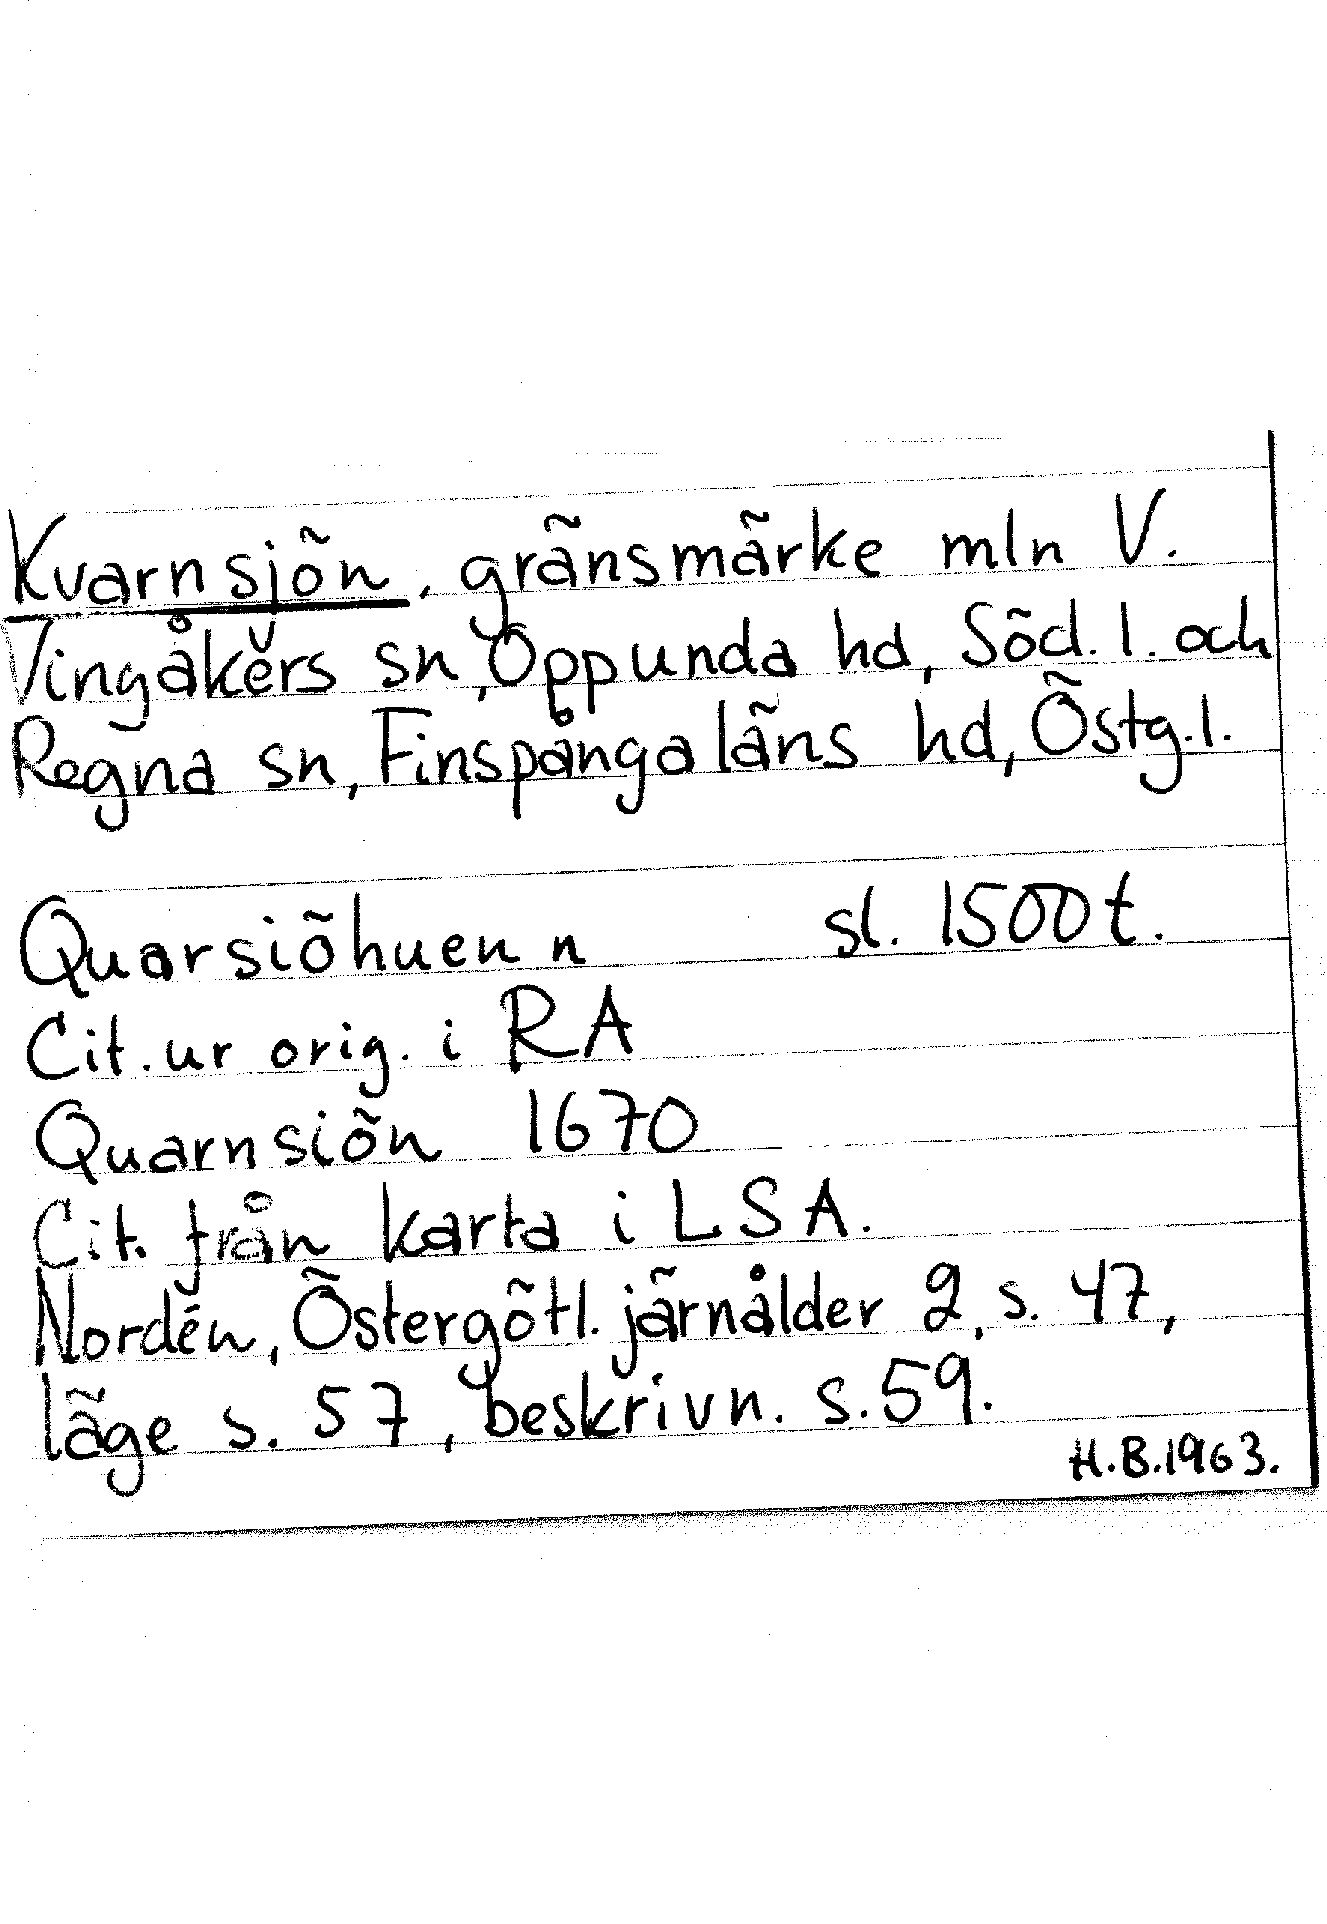 Kvarnsjön, gränsmärke mln V.
Vingåkers sn, Oppunda hd, Söd.l. och
Regna sn, Finspånga läns hd, Östg.l.
Quarsiöhuen n sl. 1500 t.
Cit. ur orig. i RA
Quarnsiön 1670
Cit. från karta i LSA.
Nordén, Östergötl. järnålder 2, s. 47,
läge s. 57, beskrivn. s. 59.
H.B. 1963.